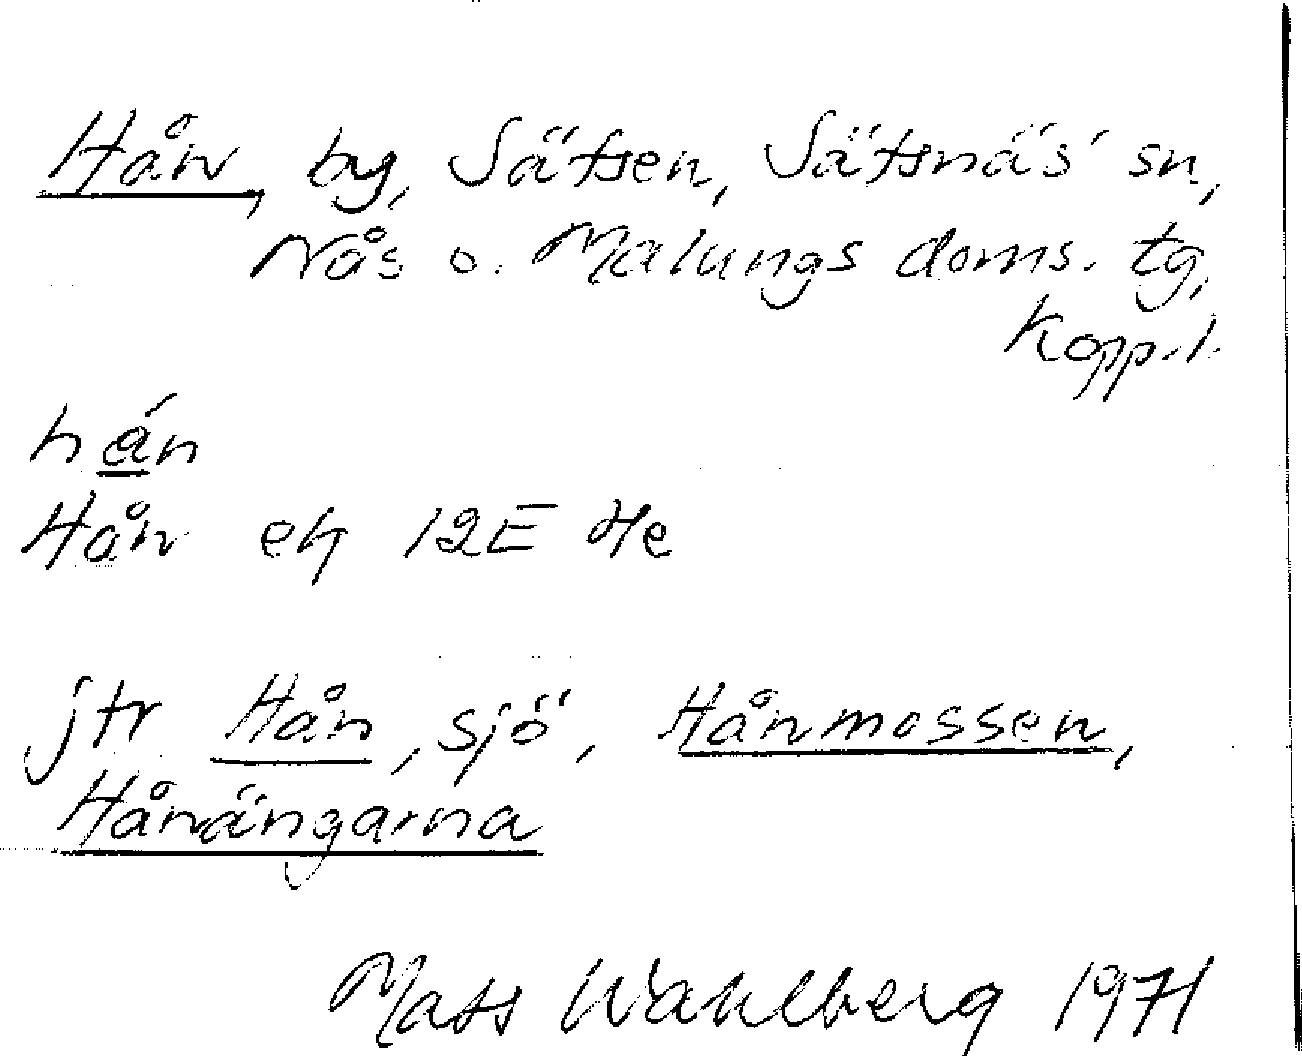 Hån, by, Sätsen, Sätsnäs sn,
Nås o. Malungs doms. tg,
Kopp. l.
hán
Hån ek 12E He
jfr Hån, sjö, Hånmossen,
Hånängarna
Mats Wahlberg 1971